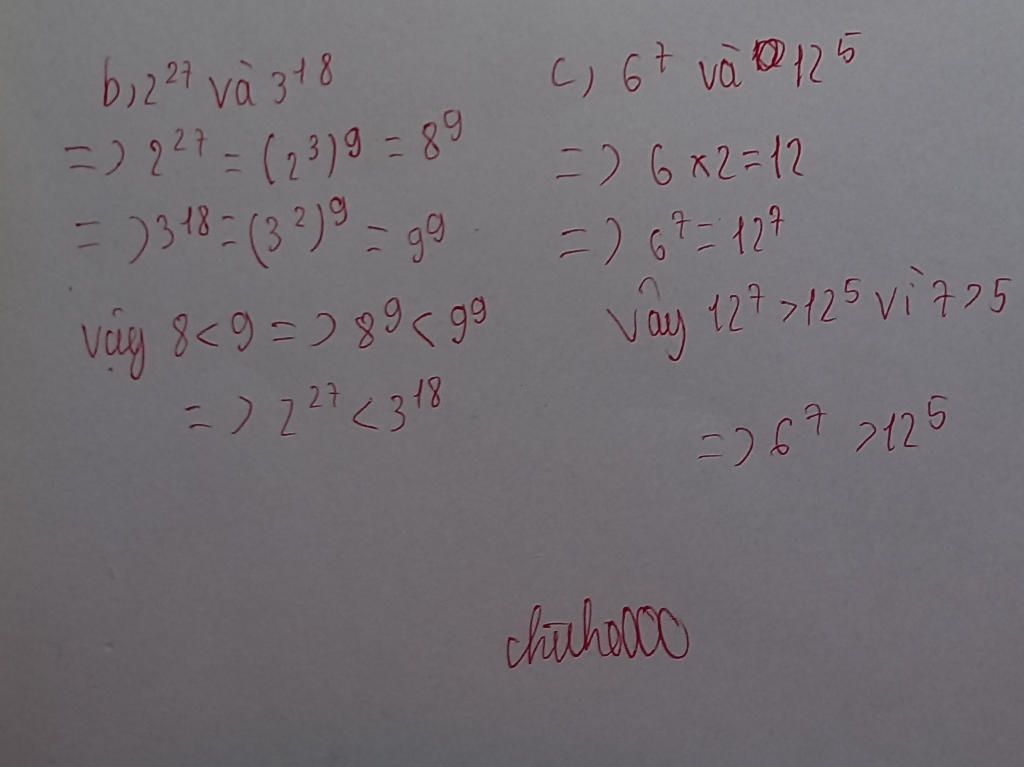 b, 2²⁷ và 3¹⁸
=> 2²⁷ = (2³)⁹ = 8⁹
=> 3¹⁸ = (3²)⁹ = 9⁹
vậy 8 < 9 => 8⁹ < 9⁹
=> 2²⁷ < 3¹⁸
c, 6⁷ và 12⁵
=> 6 × 2 = 12
=> 6⁷ = 12⁷
vây 12⁷ > 12⁵ vì 7 > 5
=> 6⁷ > 12⁵